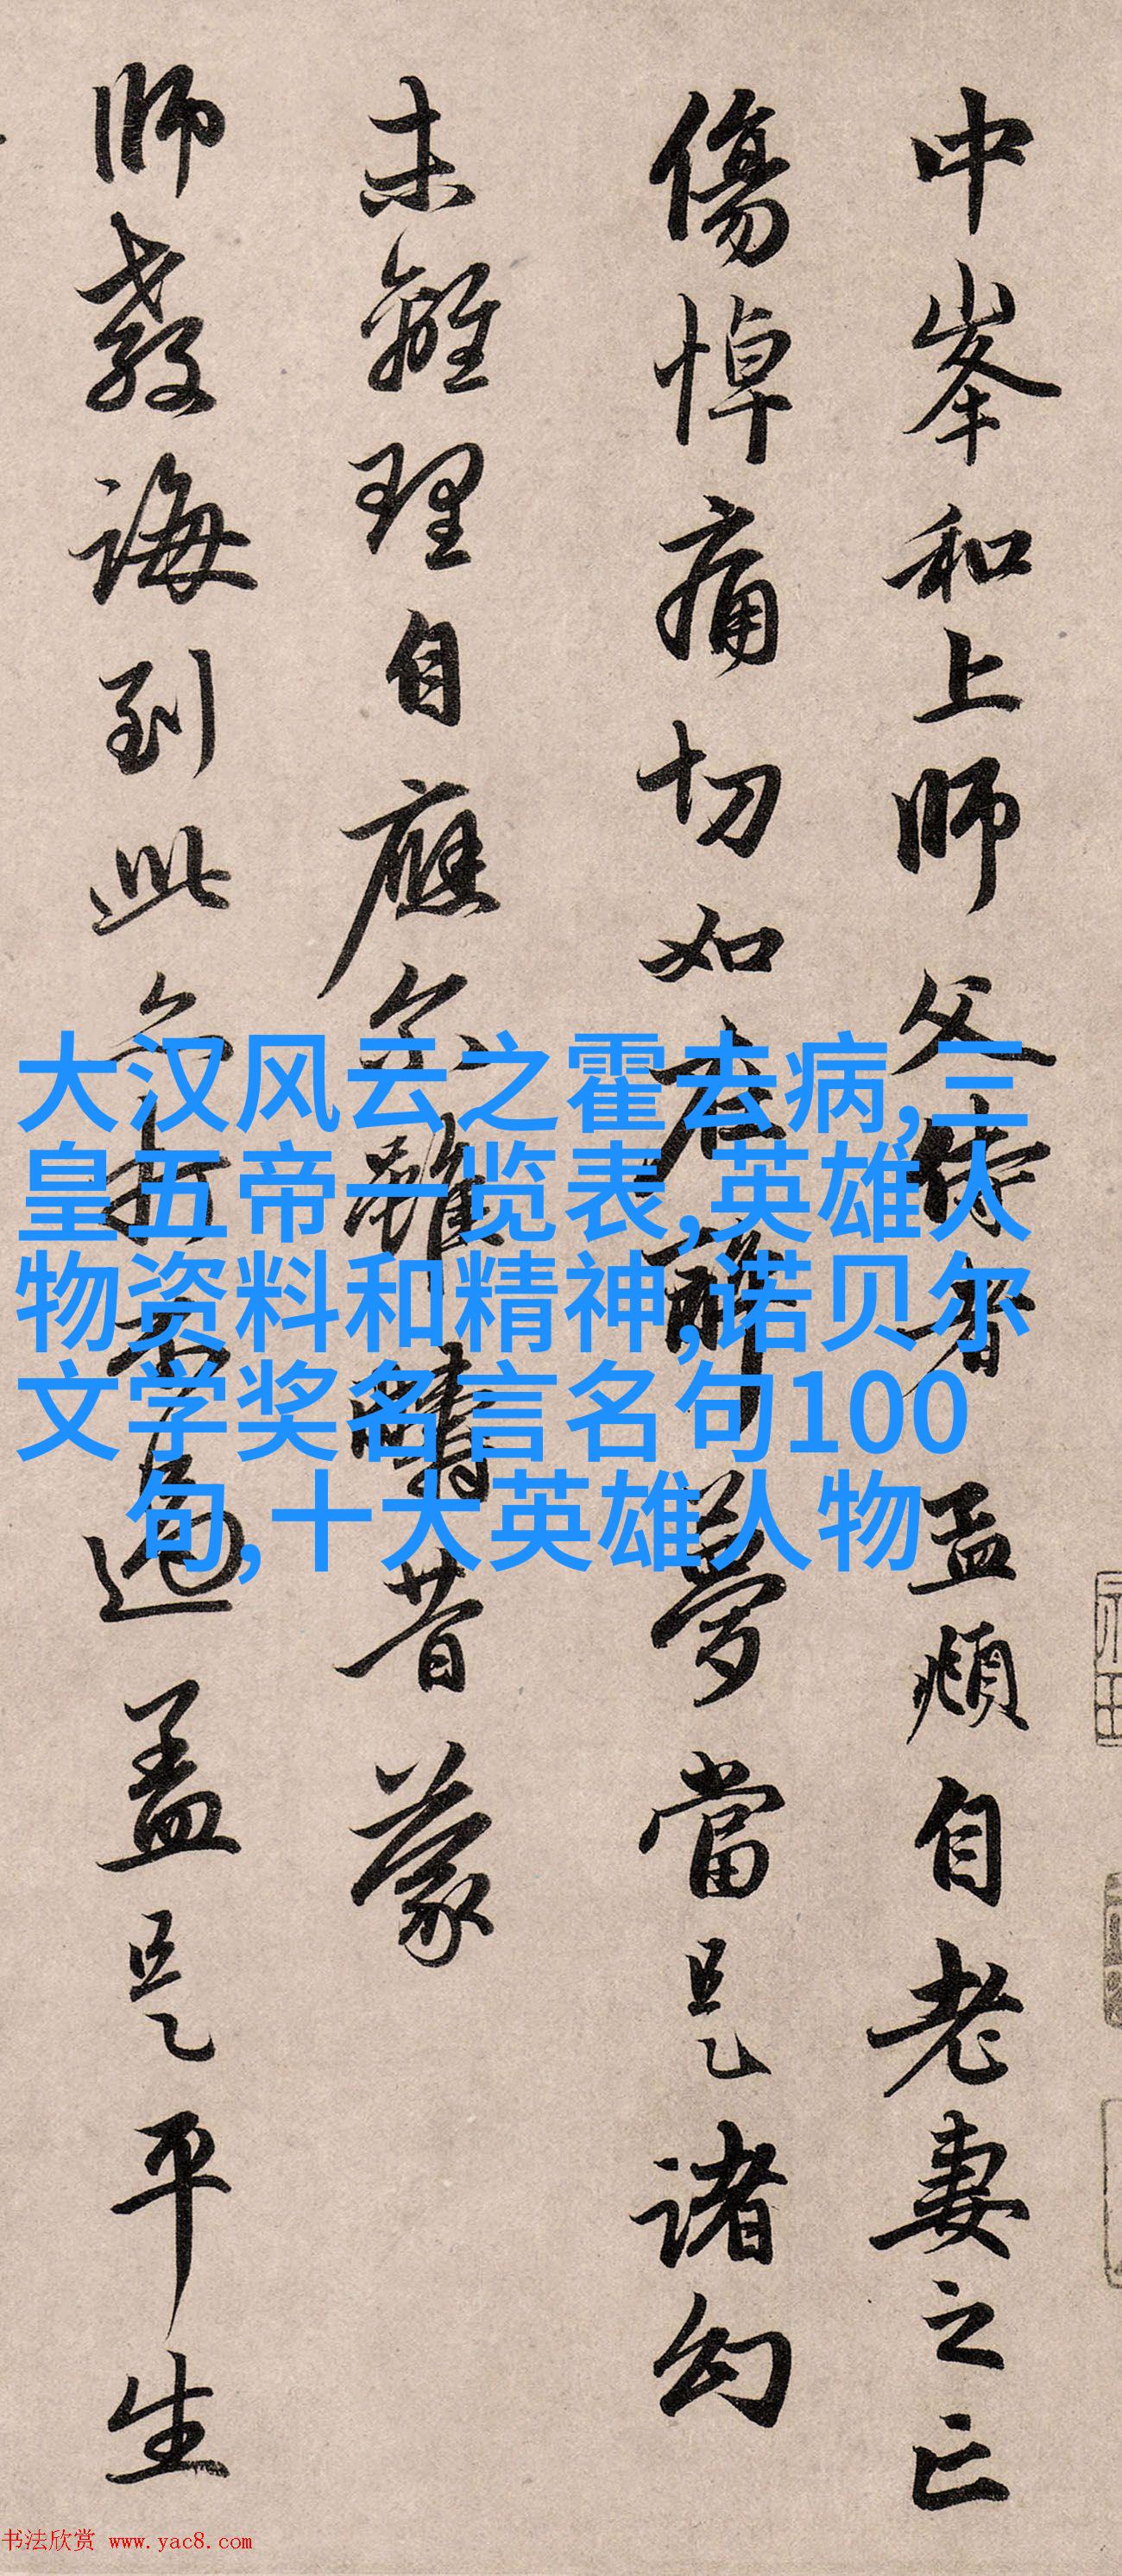 中峯和上師父侍者孟頫自老妻之亡
傷悼痛切如在醉夢當是諸幻
未離理自應尒雖疇昔蒙
師教誨到此亦打不過蓋是平生
大汉风云之霍去病,三
皇五帝一览表,英雄人
物资料和精神,诺贝尔
文学奖名言名句100
句,十大英雄人物
书法欣赏 www.yac8.com